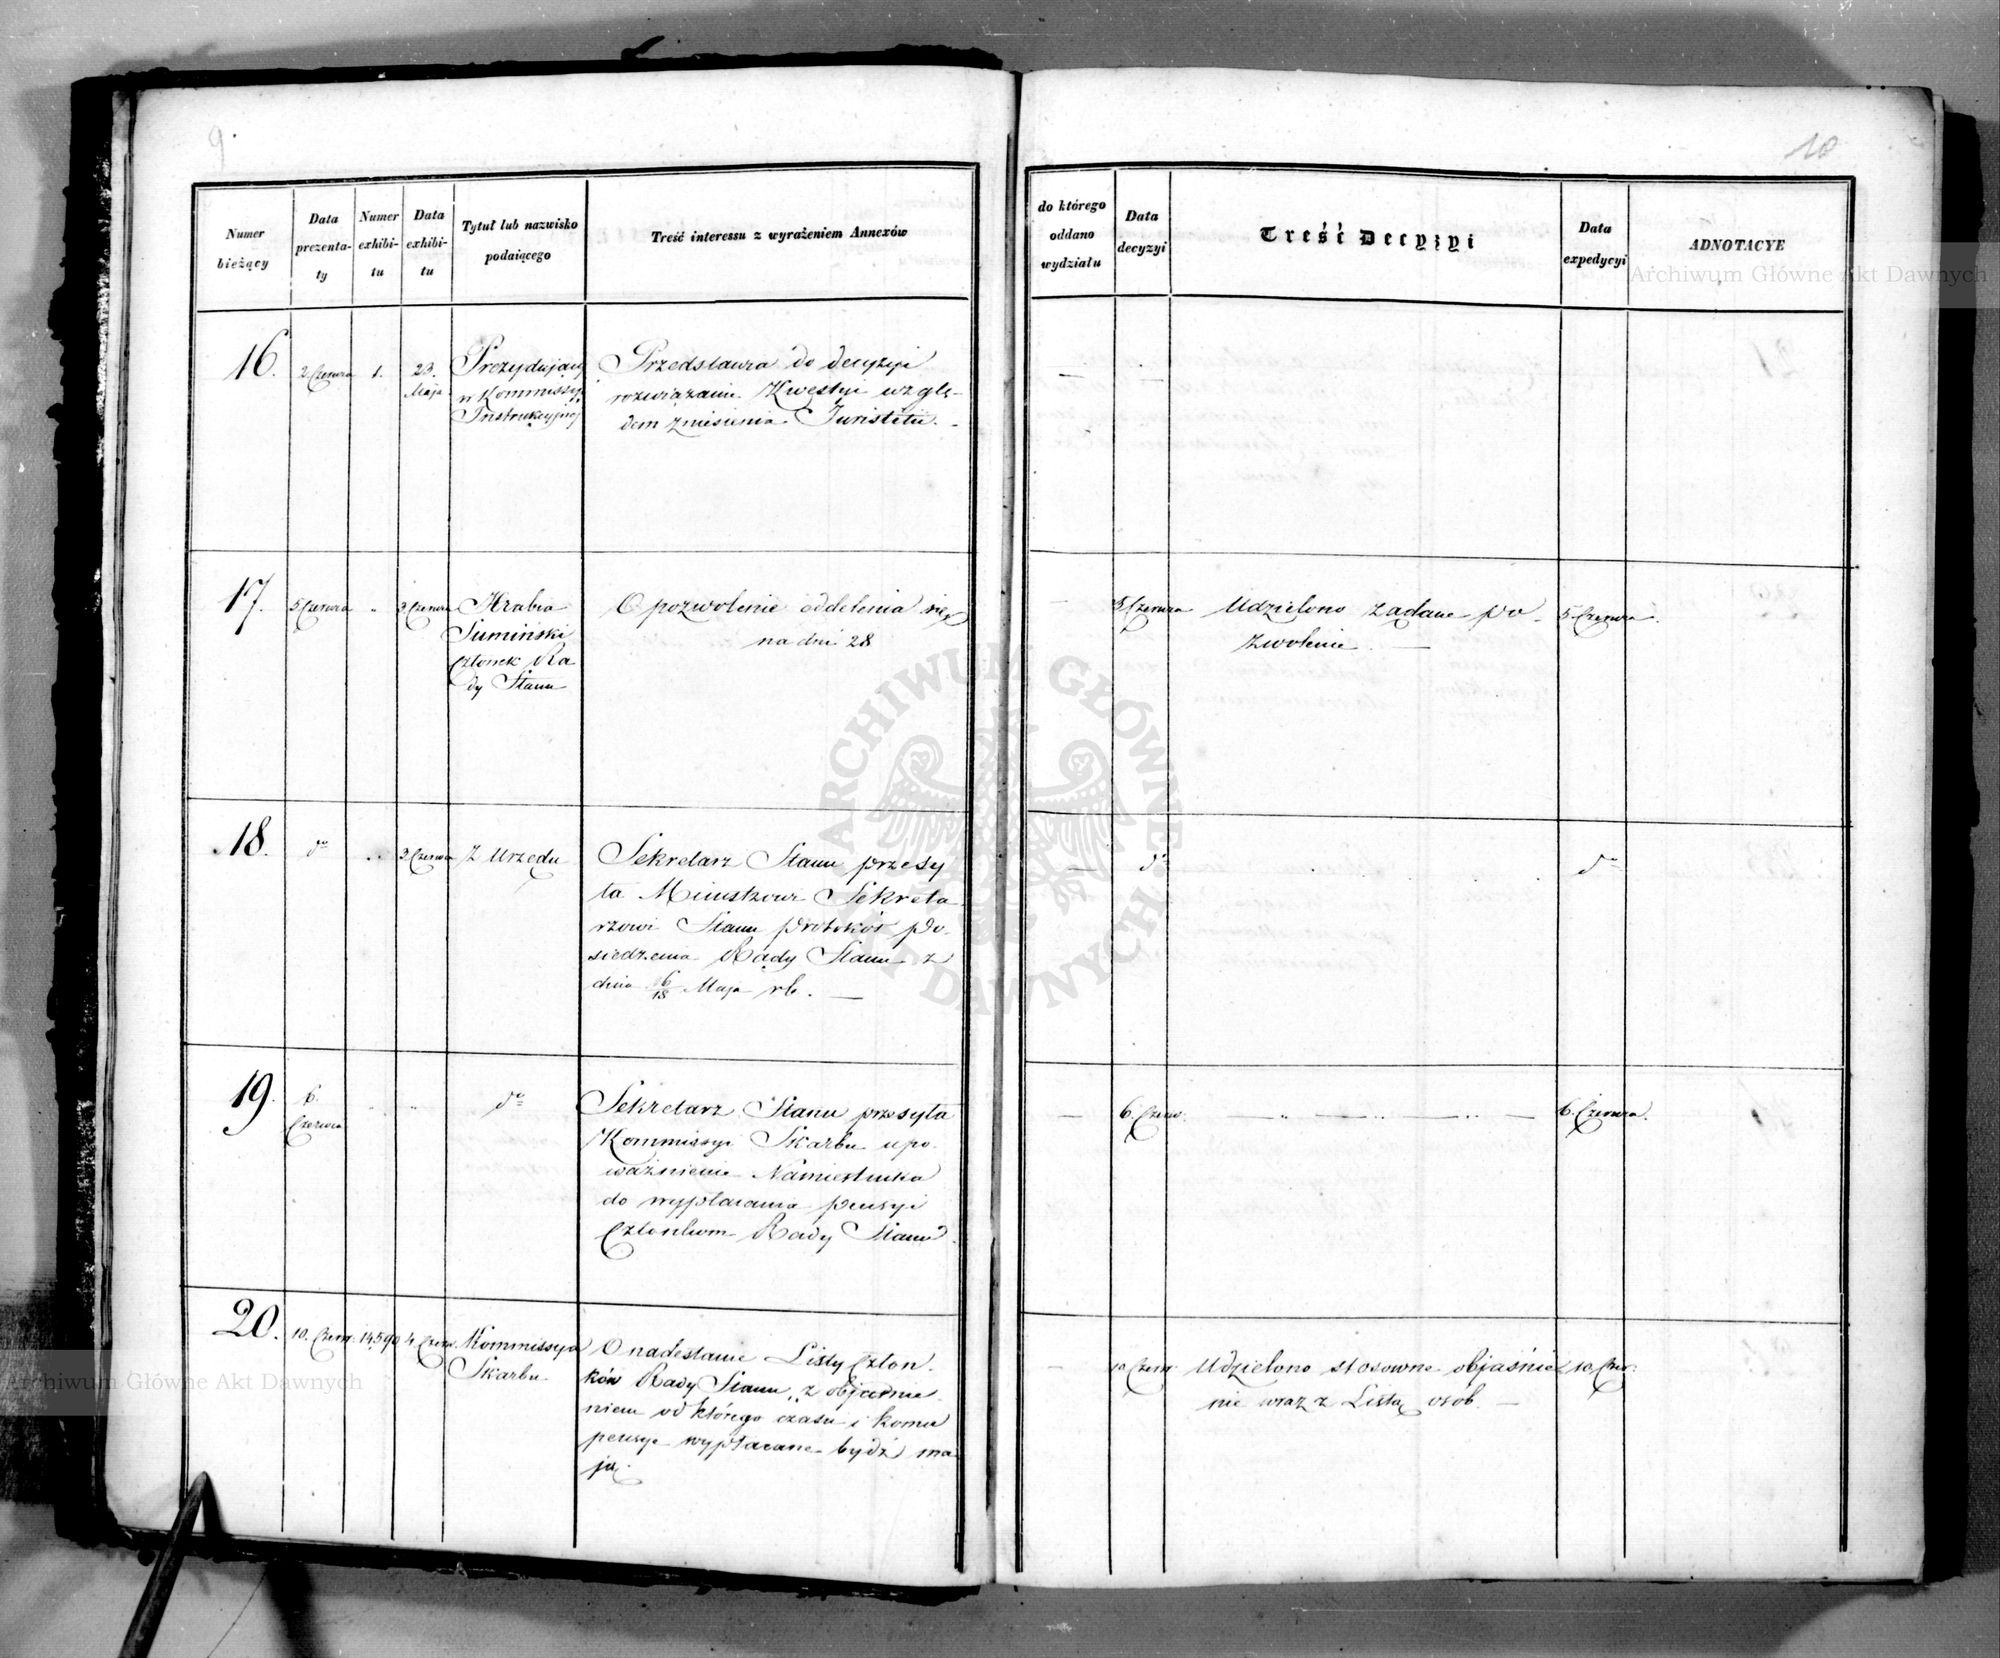 9.
Numer
bieżący
Data
prezenta-
ty
Numer
exhibi-
tu
Data
exhibi-
tu
Tytuł lub nazwisko
podaiącego
Treść interessu z wyrażeniem Annexów
16.
2 Czerwca
1.
23.
Maja
Prezydujący
w Kommissyi
Instrukcyjnej
Przedstawia do decyzyi
rozwiązanie Kwestyi wzglę-
dem zniesienia
17.
5 Czerwca
"
3 Czerwca
Hrabia
Sumiński
Członek Ra
dy Stanu
O pozwolenie oddelenia się
na dni 28
18.
do
3 Czerwca
Z Urzędu
Sekretarz Stanu przesy
ła Ministrowi Sekreta
rzowi Stanu protokół po-
siedzenia Rady Stanu z
dnia 6/18 Maja rb. —
19.
6.
Czerwca
do
Sekretarz Stanu przesyła
Kommissyi Skarbu upo-
ważnienie Namiestnika
do wypłacania pensyi
Członkom Rady Stanu.
20.
10. Czerw:
14590
4. Czerw.
Kommissya
Skarbu
O nadesłanie Listy Człon-
ków Rady Stanu, z objaśnie
niem od którego czasu i komu
pensye wypłacane bydź ma
ją.
10
do którego
oddano
wydziału
Data
decyzyi
Treść Decyzyi
Data
expedycyi
ADNOTACYE
—
—
—
5 Czerwca
Udzielono żądane po-
zwolenie. —
5. Czerwca.
—
do
do
—
6. Czerw.
— " — " — " —
6. Czerwca.
—
10 Czerw:
Udzielono stosowne objaśnie
nie wraz z Listą osób. —
10. Czer:
Archiwum Główne Akt Dawnych
ARCHIWUM GŁÓWNE AKT DAWNYCH
Archiwum Główne Akt Dawnych